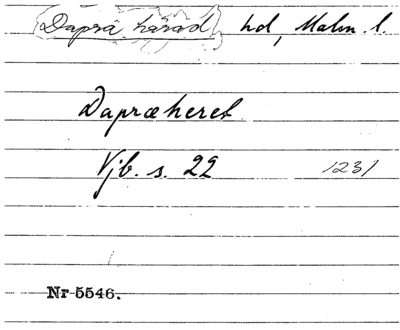 Dapra härad hd, Malm. l.
Dapræheret
Vjb. s. 22 1231
Nr 5546.